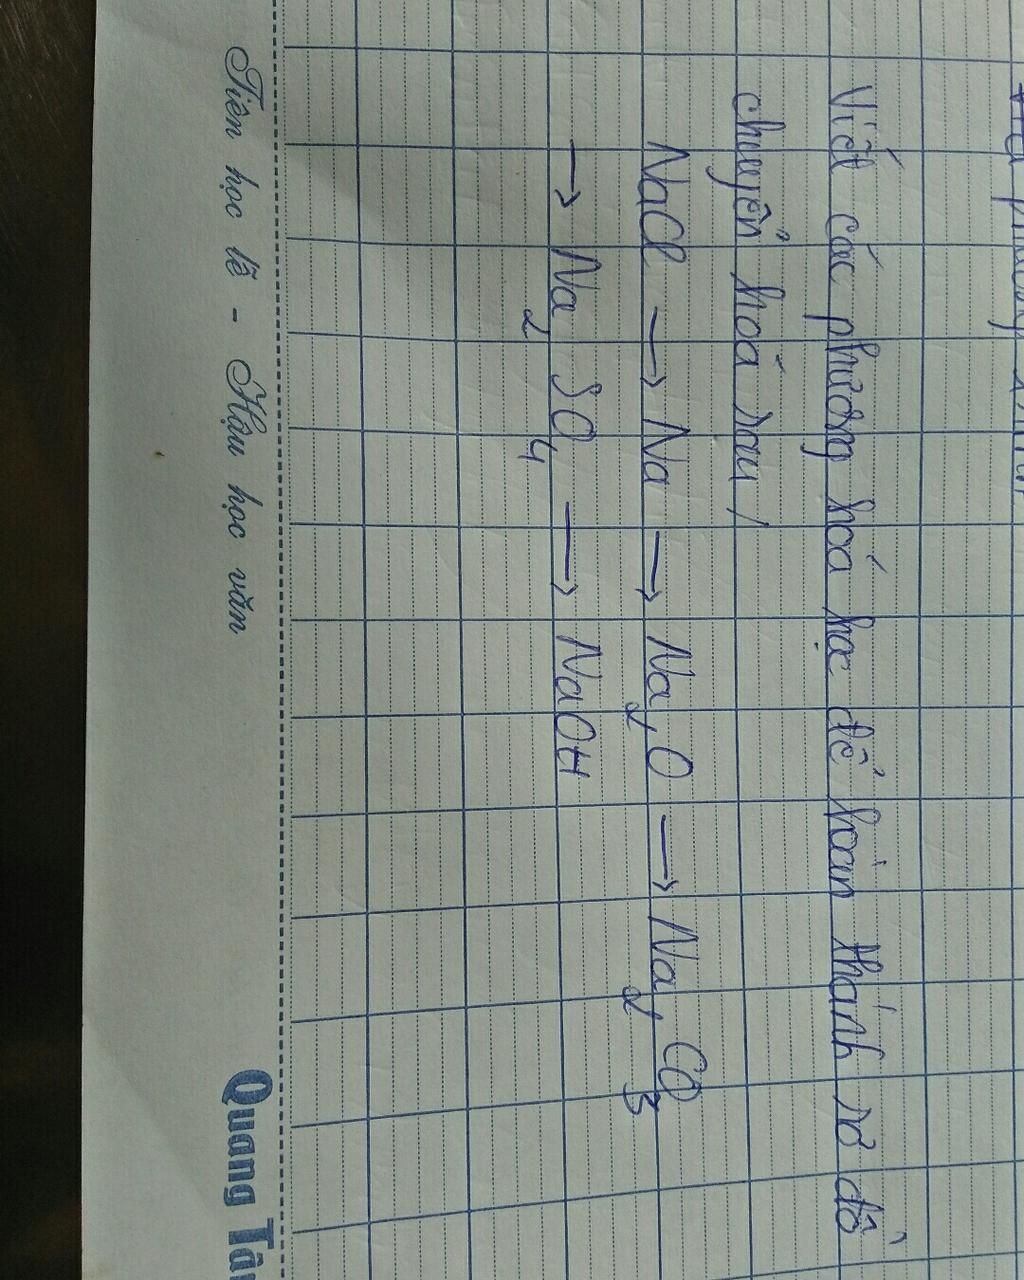 Viết các phương hoá học để hoàn thành sơ đồ
chuyển hoá sau /
NaCl → Na → Na₂O → Na₂CO₃
→ Na₂SO₄ → NaOH
Tiên học lễ - Hậu học văn
Quang